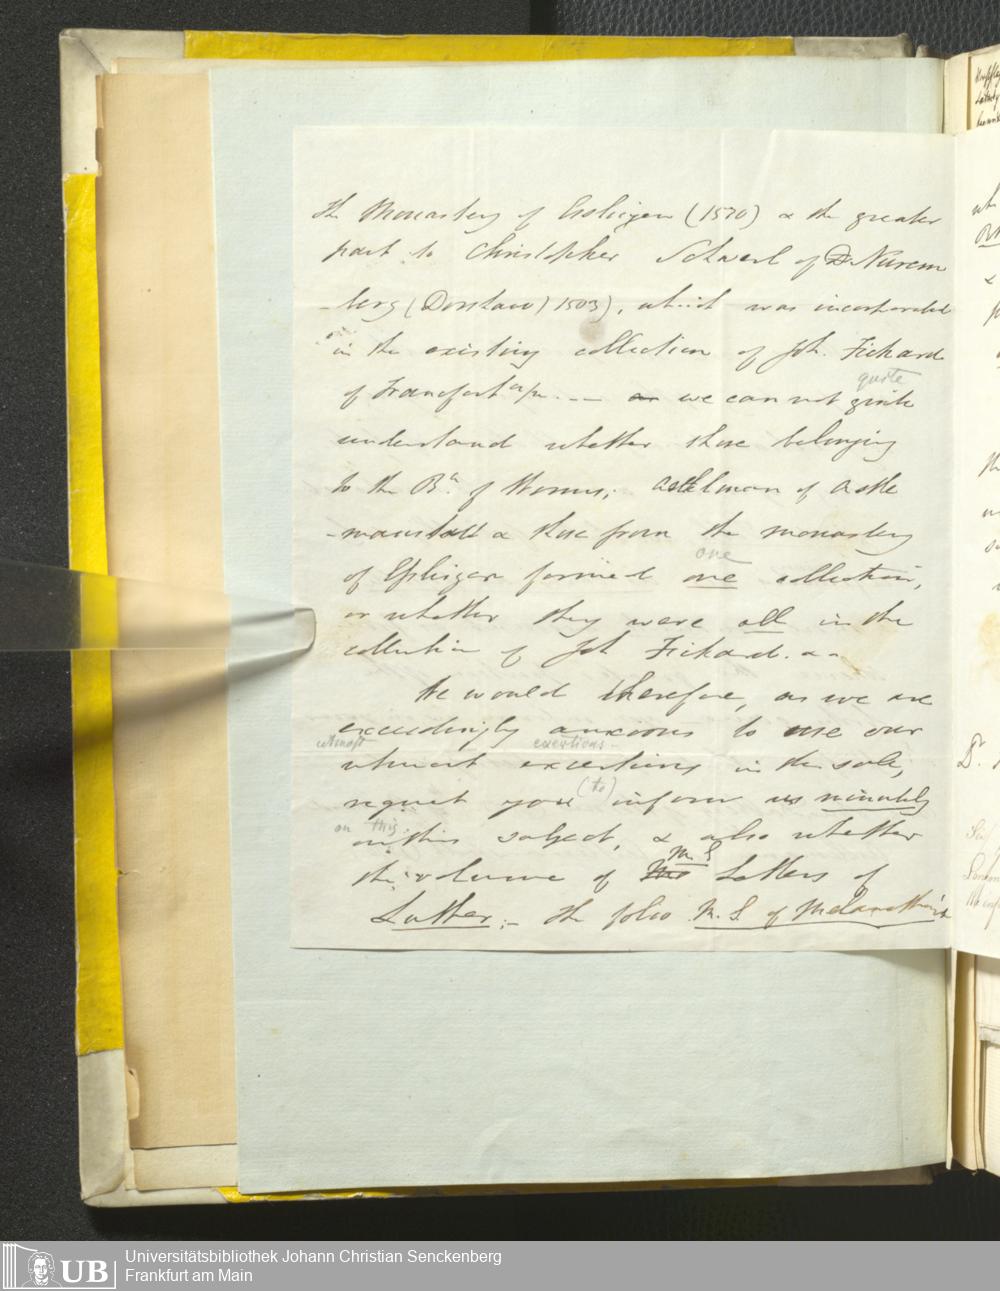 the Monastery of Eslingen (1570) & the greater
part to Christopher Scheurl of D Nurem
-berg (Dorslaw) 1503), which was incorporated
in the existing collection of Joh. Fichard
of Francfort a/m. — we can not quite
quite
understand whether those belonging
to the Bp. of Worms; of
& those from the monastery
one
of Eslingen formed one collection,
or whether they were all in the
collection of Joh Fichard. —
We would therefore, as we are
exceedingly anxious to use our
utmost exertions
utmost exertions in the sale,
(to)
request you inform us minutely
on this
on this subject, & also whether
M. S
the volume of Letters of
Luther; — the folio M. S. of Melancthon's
Dr.
London
UB
Universitätsbibliothek Johann Christian Senckenberg
Frankfurt am Main